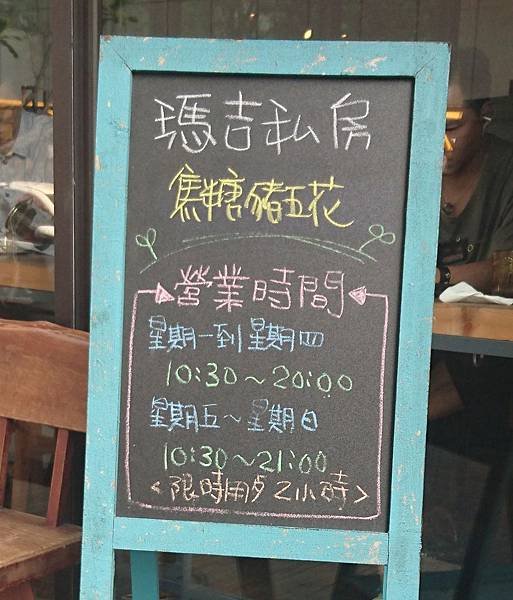 瑪吉私房
焦糖豬五花
營業時間
星期一到星期四
10:30～20:00
星期五～星期日
10:30～21:00
<限時用歺2小時>